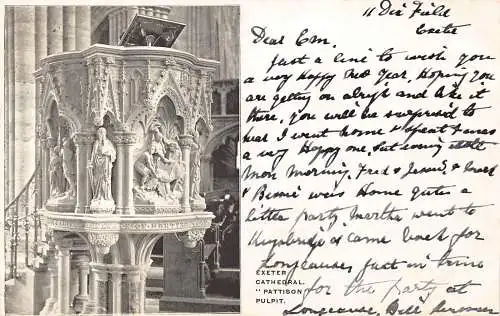 11 Dix Field
Exeter
Dear Em.
Just a line to wish you
a very Happy New Year, Hoping you
are getting on alright and like it
there, you will be surprised to
hear I went home & spent Xmas
a very Happy one, but coming
Mon Morning, Fred &
& Bessie were Home quite a
little party Martha went to
& came back for
Longcauses just in time
for the party at
Longcause, Bill
EXETER
CATHEDRAL.
"PATTISON"
PULPIT.